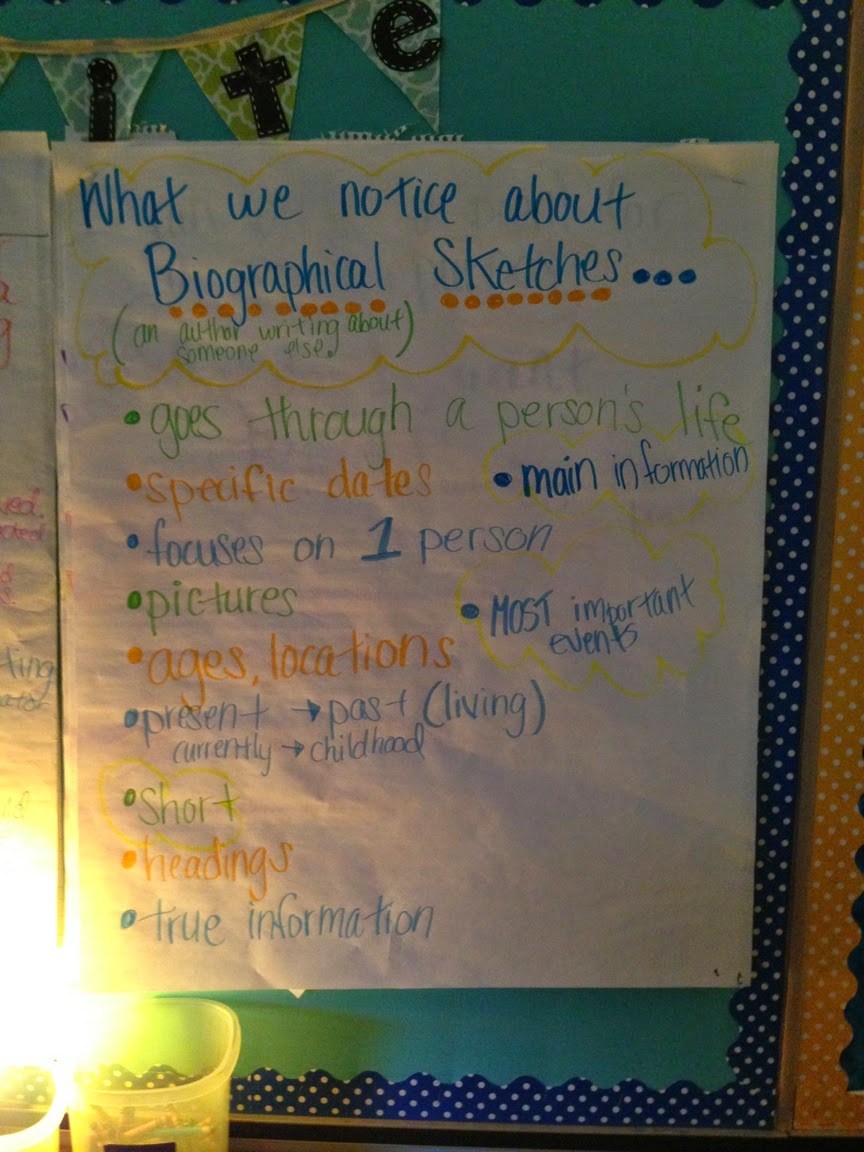 ite
What we notice about
Biographical Sketches...
(an author writing about)
someone else.
•goes through a person's life
•specific dates
•main information
•focuses on 1 person
•pictures
•MOST important
events
•ages, locations
•present → past (living)
currently → childhood
•Short
•headings
•true information